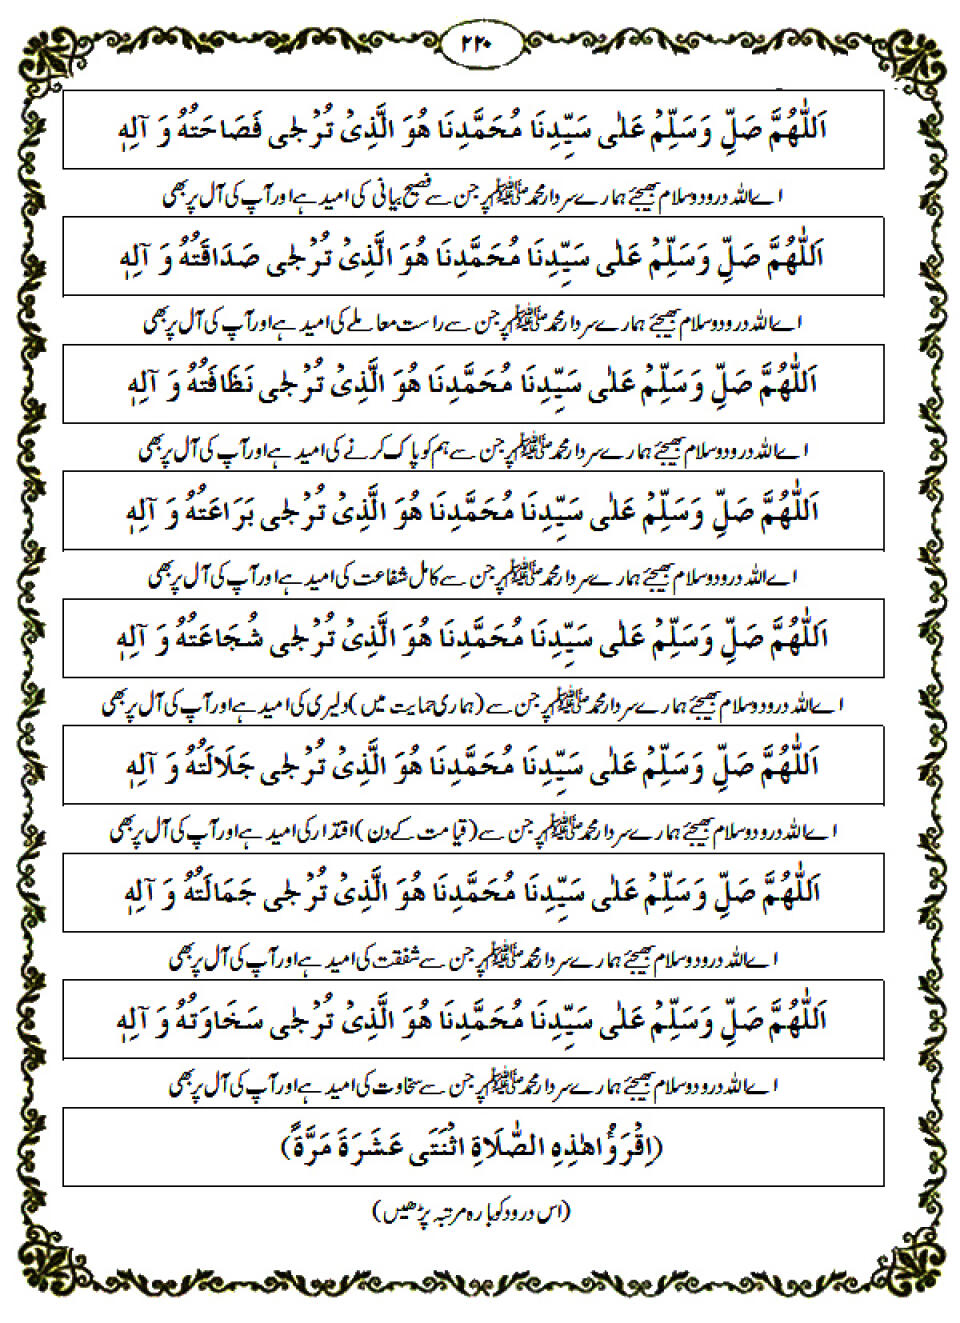 ۲۲۰
اَللّٰهُمَّ صَلِّ وَسَلِّمْ عَلٰى سَيِّدِنَا مُحَمَّدِنَا هُوَ الَّذِىْ تُرْجٰى فَصَاحَتُهُ وَ آلِهٖ
اے اللہ درود و سلام بھیجئے ہمارے سردار محمد ﷺ پر جن سے فصیح بیانی کی امید ہے اور آپ کی آل پر بھی
اَللّٰهُمَّ صَلِّ وَسَلِّمْ عَلٰى سَيِّدِنَا مُحَمَّدِنَا هُوَ الَّذِىْ تُرْجٰى صَدَاقَتُهُ وَ آلِهٖ
اے اللہ درود و سلام بھیجئے ہمارے سردار محمد ﷺ پر جن سے راست معاملے کی امید ہے اور آپ کی آل پر بھی
اَللّٰهُمَّ صَلِّ وَسَلِّمْ عَلٰى سَيِّدِنَا مُحَمَّدِنَا هُوَ الَّذِىْ تُرْجٰى نَظَافَتُهُ وَ آلِهٖ
اے اللہ درود و سلام بھیجئے ہمارے سردار محمد ﷺ پر جن سے ہم کو پاک کرنے کی امید ہے اور آپ کی آل پر بھی
اَللّٰهُمَّ صَلِّ وَسَلِّمْ عَلٰى سَيِّدِنَا مُحَمَّدِنَا هُوَ الَّذِىْ تُرْجٰى بَرَاعَتُهُ وَ آلِهٖ
اے اللہ درود و سلام بھیجئے ہمارے سردار محمد ﷺ پر جن سے کامل شفاعت کی امید ہے اور آپ کی آل پر بھی
اَللّٰهُمَّ صَلِّ وَسَلِّمْ عَلٰى سَيِّدِنَا مُحَمَّدِنَا هُوَ الَّذِىْ تُرْجٰى شُجَاعَتُهُ وَ آلِهٖ
اے اللہ درود و سلام بھیجئے ہمارے سردار محمد ﷺ پر جن سے (ہماری حمایت میں) دلیری کی امید ہے اور آپ کی آل پر بھی
اَللّٰهُمَّ صَلِّ وَسَلِّمْ عَلٰى سَيِّدِنَا مُحَمَّدِنَا هُوَ الَّذِىْ تُرْجٰى جَلَالَتُهُ وَ آلِهٖ
اے اللہ درود و سلام بھیجئے ہمارے سردار محمد ﷺ پر جن سے (قیامت کے دن) اقتدار کی امید ہے اور آپ کی آل پر بھی
اَللّٰهُمَّ صَلِّ وَسَلِّمْ عَلٰى سَيِّدِنَا مُحَمَّدِنَا هُوَ الَّذِىْ تُرْجٰى جَمَالَتُهُ وَ آلِهٖ
اے اللہ درود و سلام بھیجئے ہمارے سردار محمد ﷺ پر جن سے شفقت کی امید ہے اور آپ کی آل پر بھی
اَللّٰهُمَّ صَلِّ وَسَلِّمْ عَلٰى سَيِّدِنَا مُحَمَّدِنَا هُوَ الَّذِىْ تُرْجٰى سَخَاوَتُهُ وَ آلِهٖ
اے اللہ درود و سلام بھیجئے ہمارے سردار محمد ﷺ پر جن سے سخاوت کی امید ہے اور آپ کی آل پر بھی
(اِقْرَؤُا هٰذِهِ الصَّلَاةِ اثْنَتَى عَشَرَةَ مَرَّةً)
(اس درود کو بارہ مرتبہ پڑھیں)